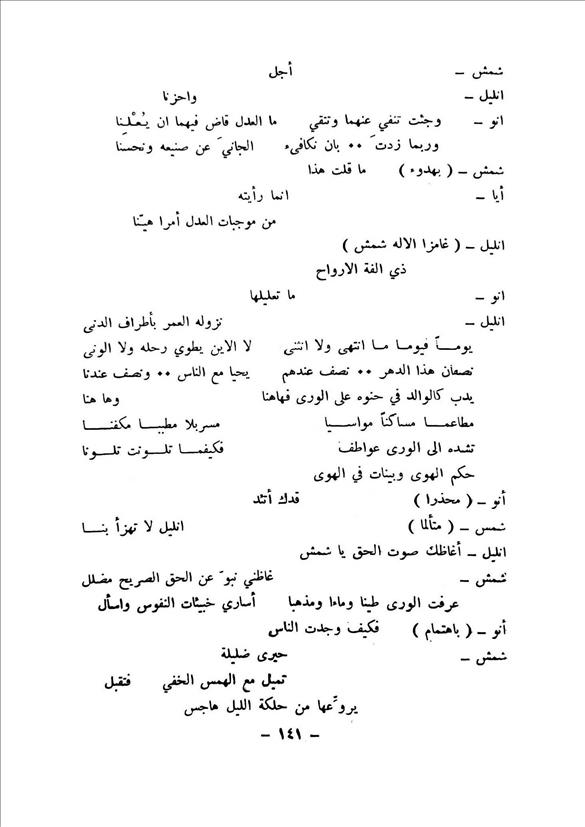 شمش – أجل
انليل – واحزنا
انو – وجئت تنفي عنهما وتنقي ما العدل قاض فيهما ان يُعْلِنا
وربما زدتَ ٠٠ بان نكافىء الجانيَ عن صنيعه ونحسنا
شمش – ( بهدوء ) ما قلت هذا
أيا – انما رأيته
من موجبات العدل أمرا هيّنا
انليل – ( غامزا الاله شمش )
ذي الفة الارواح
انو – ما تعليلها
انليل – نزوله العمر بأطراف الدنى
يومـاً فيومـا مـا انتهى ولا انثنى لا الاين يطوي رحله ولا الونى
نصفان هذا الدهر ٠٠ نصف عندهم يحيا مع الناس ٠٠ ونصف عندنا
يدب كالوالد في حنوه على الورى فهاهنا وها هنا
مطاعمـا مساكناً مواسـيا مسربلا مطببـا مكفنـا
تشده الى الورى عواطف فكيفمـا تلـونت تلـونا
حكم الهوى وبينات في الهوى
أنو – ( محذرا ) قدك أتئد
شمس – ( متألما ) انليل لا تهزأ بنـا
انليل – أغاظك صوت الحق يا شمش
شمش – غاظني نبوّ عن الحق الصريح مضلل
عرفت الورى طينا وماءا ومذهبا أساري خبيئات النفوس واسأل
أنو – ( باهتمام ) فكيف وجدت الناس
شمش – حيرى ضليلة
تميل مع الهمس الخفي فتقبل
يروّعها من حلكة الليل هاجس
– ١٤١ –